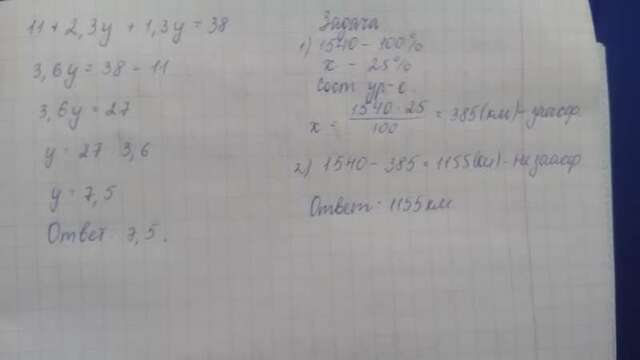 11 + 2,3y + 1,3y = 38
3,6y = 38 - 11
3,6y = 27
y = 27 3,6
y = 7,5
Ответ 7,5.
Задача
1) 1540 - 100%
x - 25%
Сост ур-е.
x = 1540 · 25 / 100 = 385(км) - заасф.
2) 1540 - 385 = 1155(км) - не заасф
Ответ: 1155 км